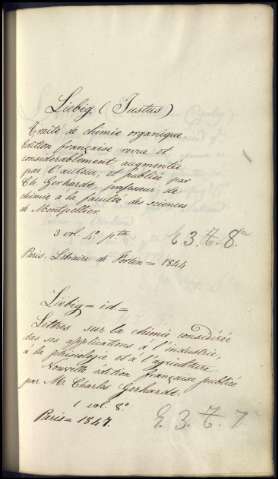 Liebig (Justus)
Traité de chimie organique
édition française revue et
considérablement augmentée
par l'auteur, et publiée par
Ch. Gerhardt, professeur de
chimie à la faculté des sciences
de Montpellier
3 vol. 4º.
E 3. T. 8
Paris. Librairie de Fortin = 1844
Liebig = id =
Lettres sur la chimie considérée
dans ses applications à l'industrie,
à la phisiologie et à l'agriculture.
Nouvelle édition française publiée
par Mr. Charles Gerhardt.
1 vol. 8º
Paris = 1847.
E. 3. T. 7